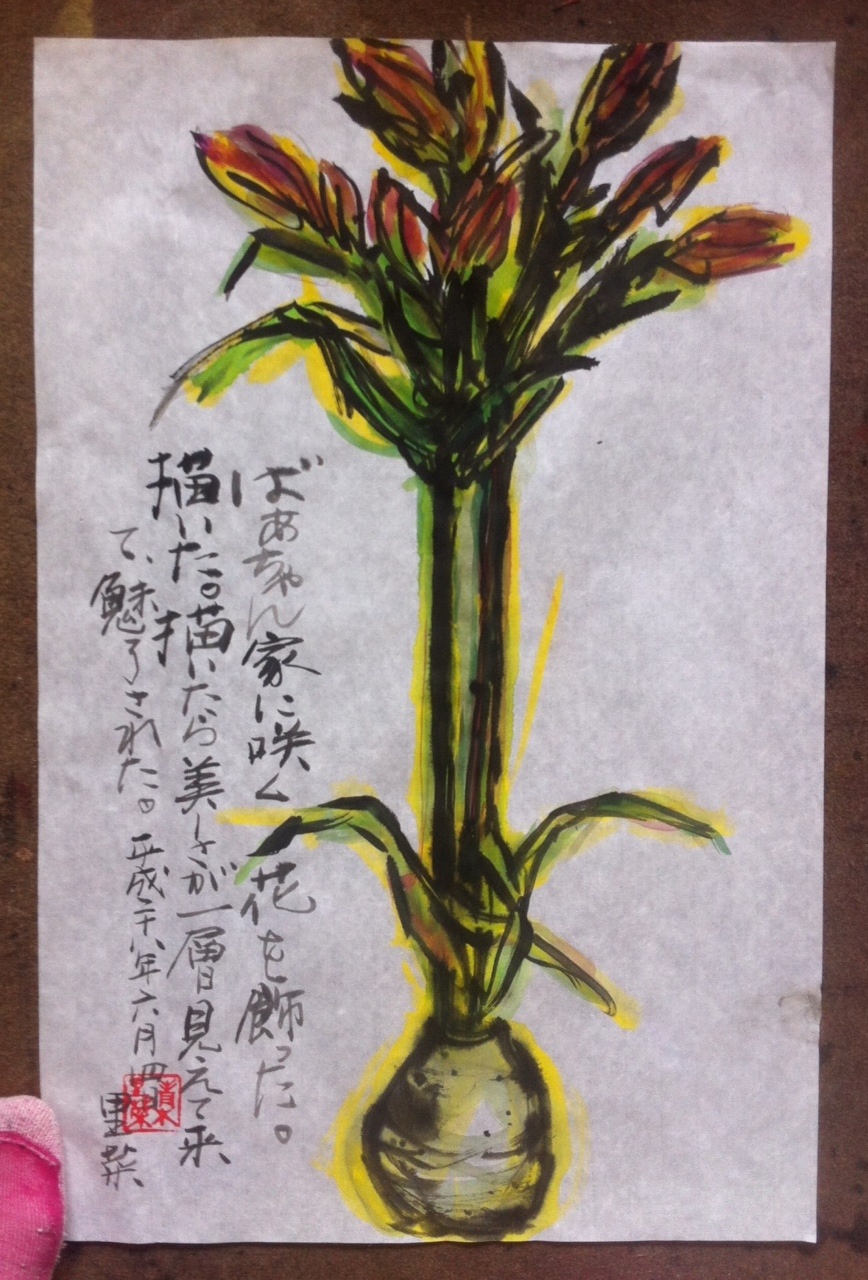 ばあちゃん家に咲く花を飾った。
描いた。描いたら美しさが一層見えて来
て、魅了された。平成二十八年六月四日
里菜
青木
里菜